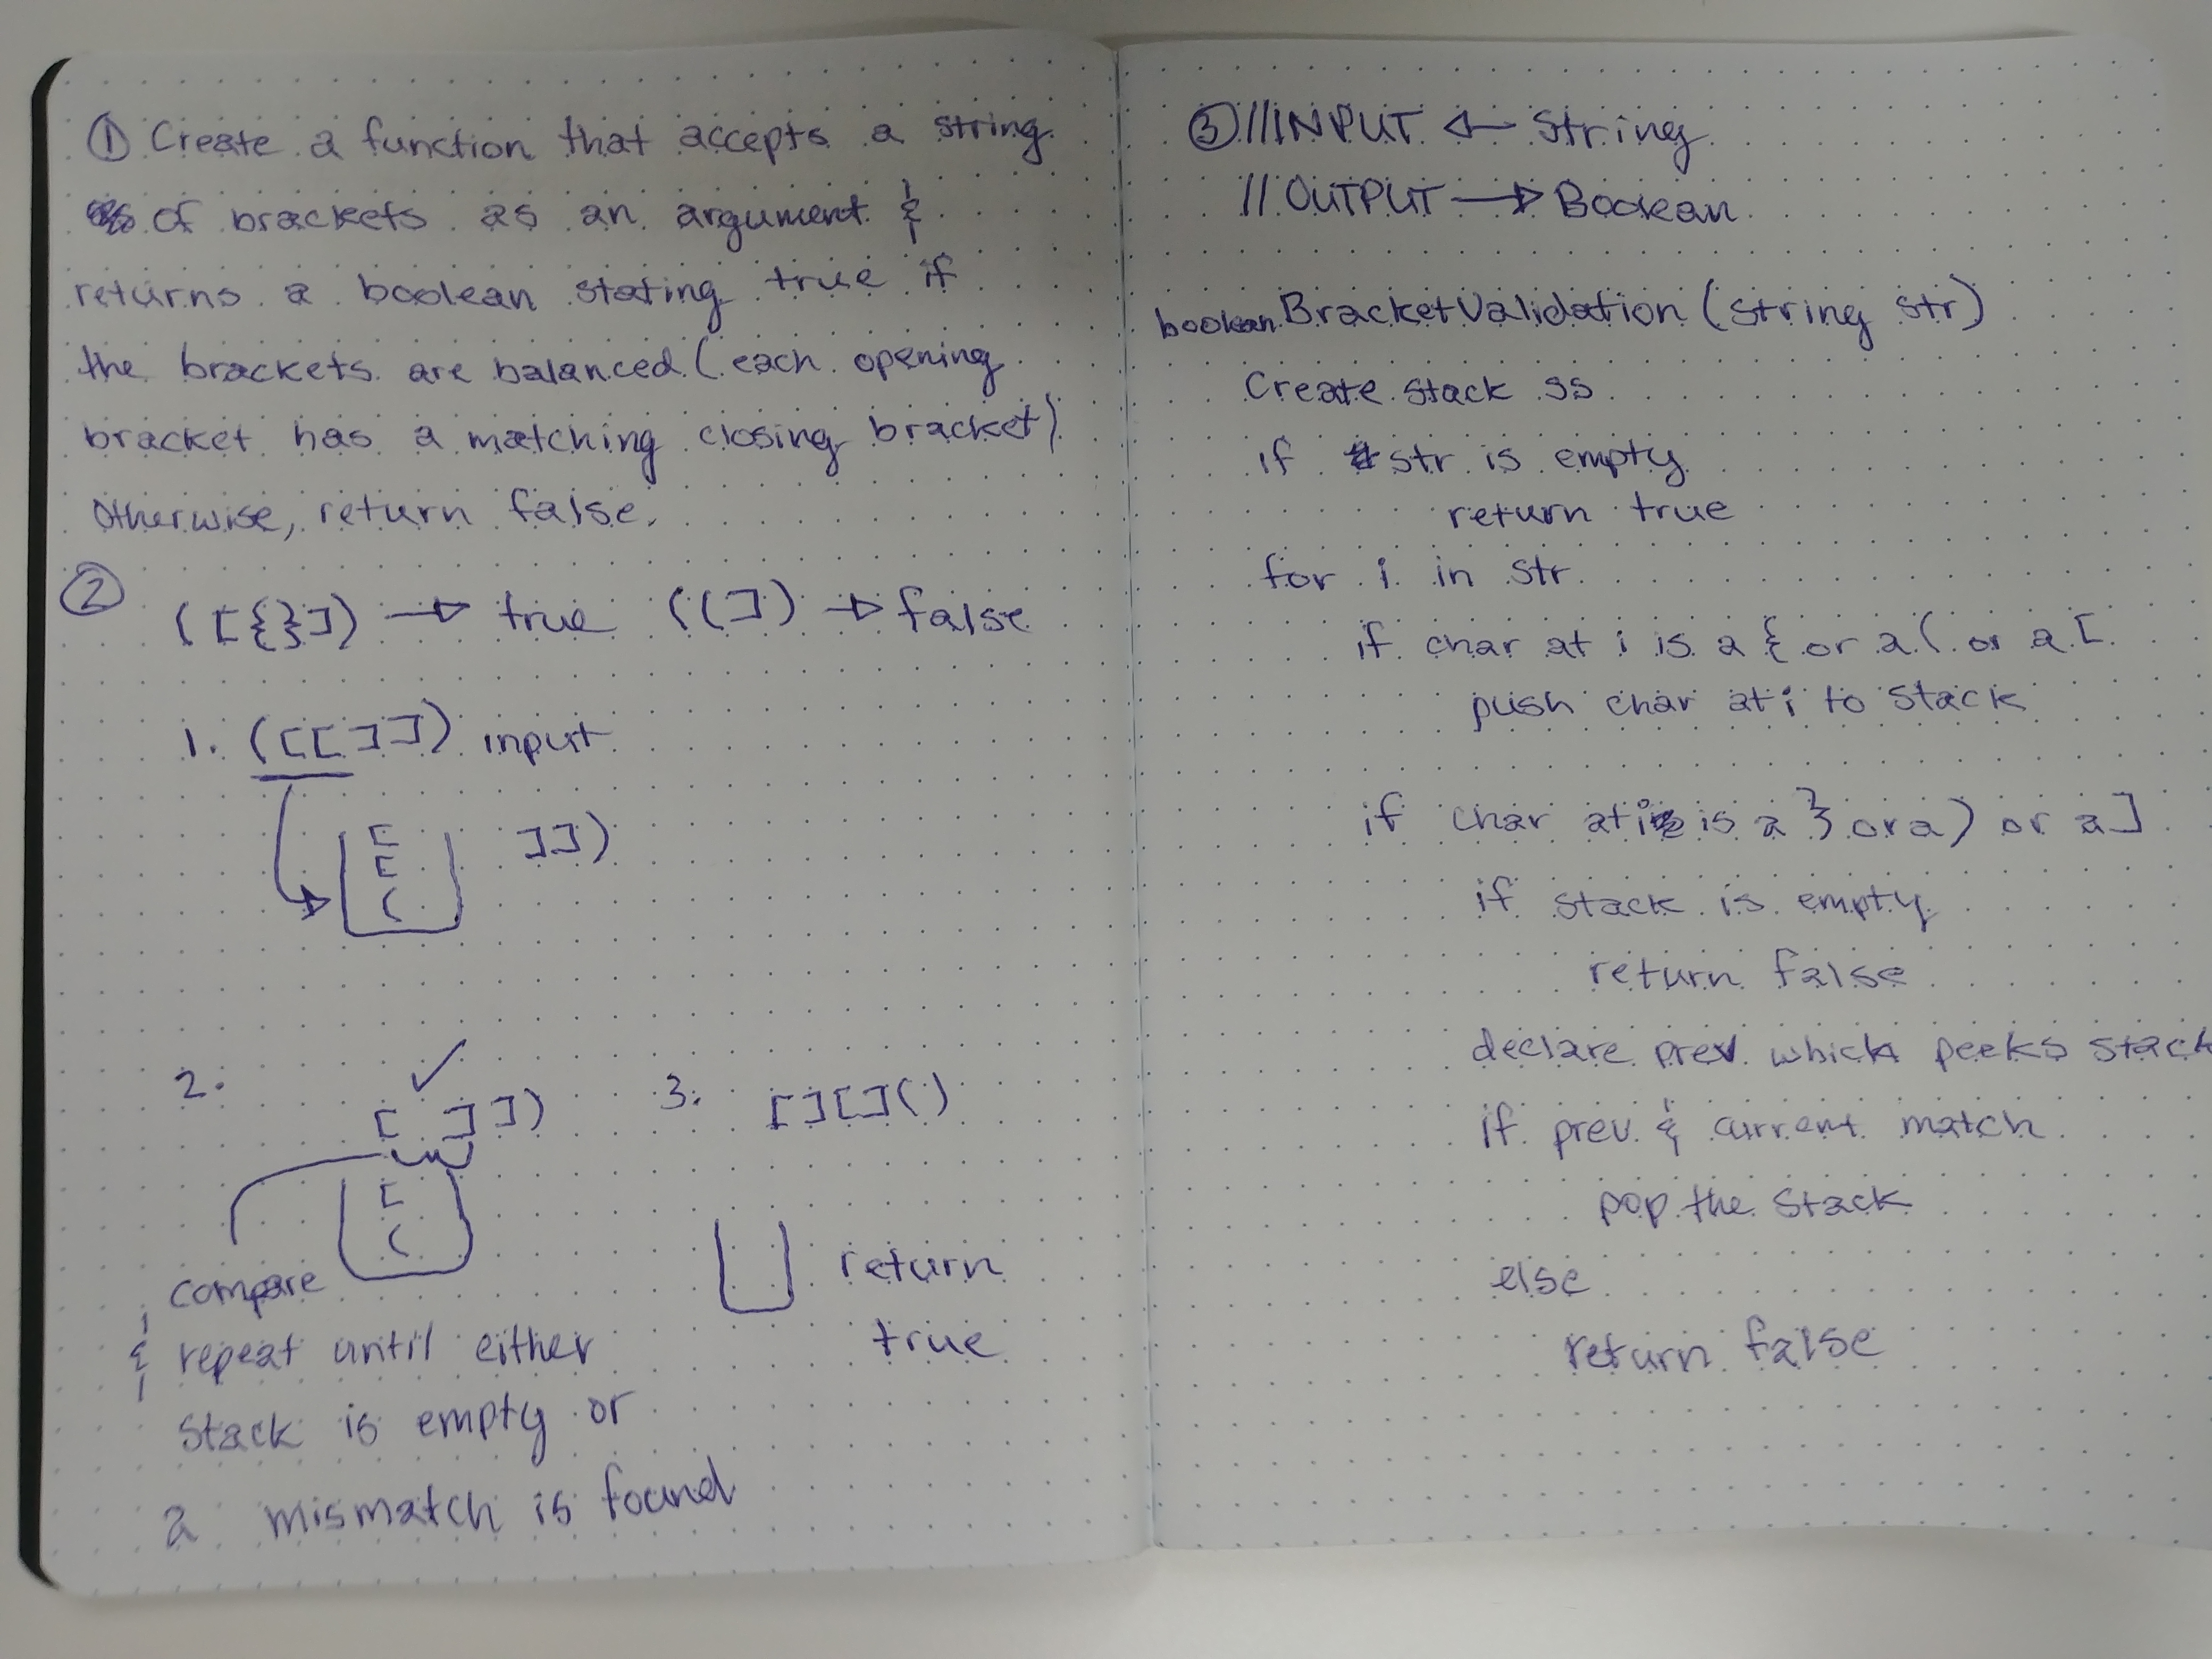 ① Create a function that accepts a string
of brackets as an argument &
returns a boolean stating true if
the brackets are balanced (each opening
bracket has a matching closing bracket)
Otherwise, return false.
②
([{}]) → true ((]) → false
1. ([[]]) input
[
[ ]])
(
2. ✓
[ ]])
[
(
compare
& repeat until either
stack is empty or
a mismatch is found
3. [][]()
return
true
③ //INPUT ← String
//OUTPUT → Boolean
boolean BracketValidation (string str)
Create stack ss
if str is empty
return true
for i in str
if char at i is a { or a ( or a [
push char at i to stack
if char at i is a } or a ) or a ]
if stack is empty
return false
declare prev which peeks stack
if prev & current match
pop the stack
else
return false